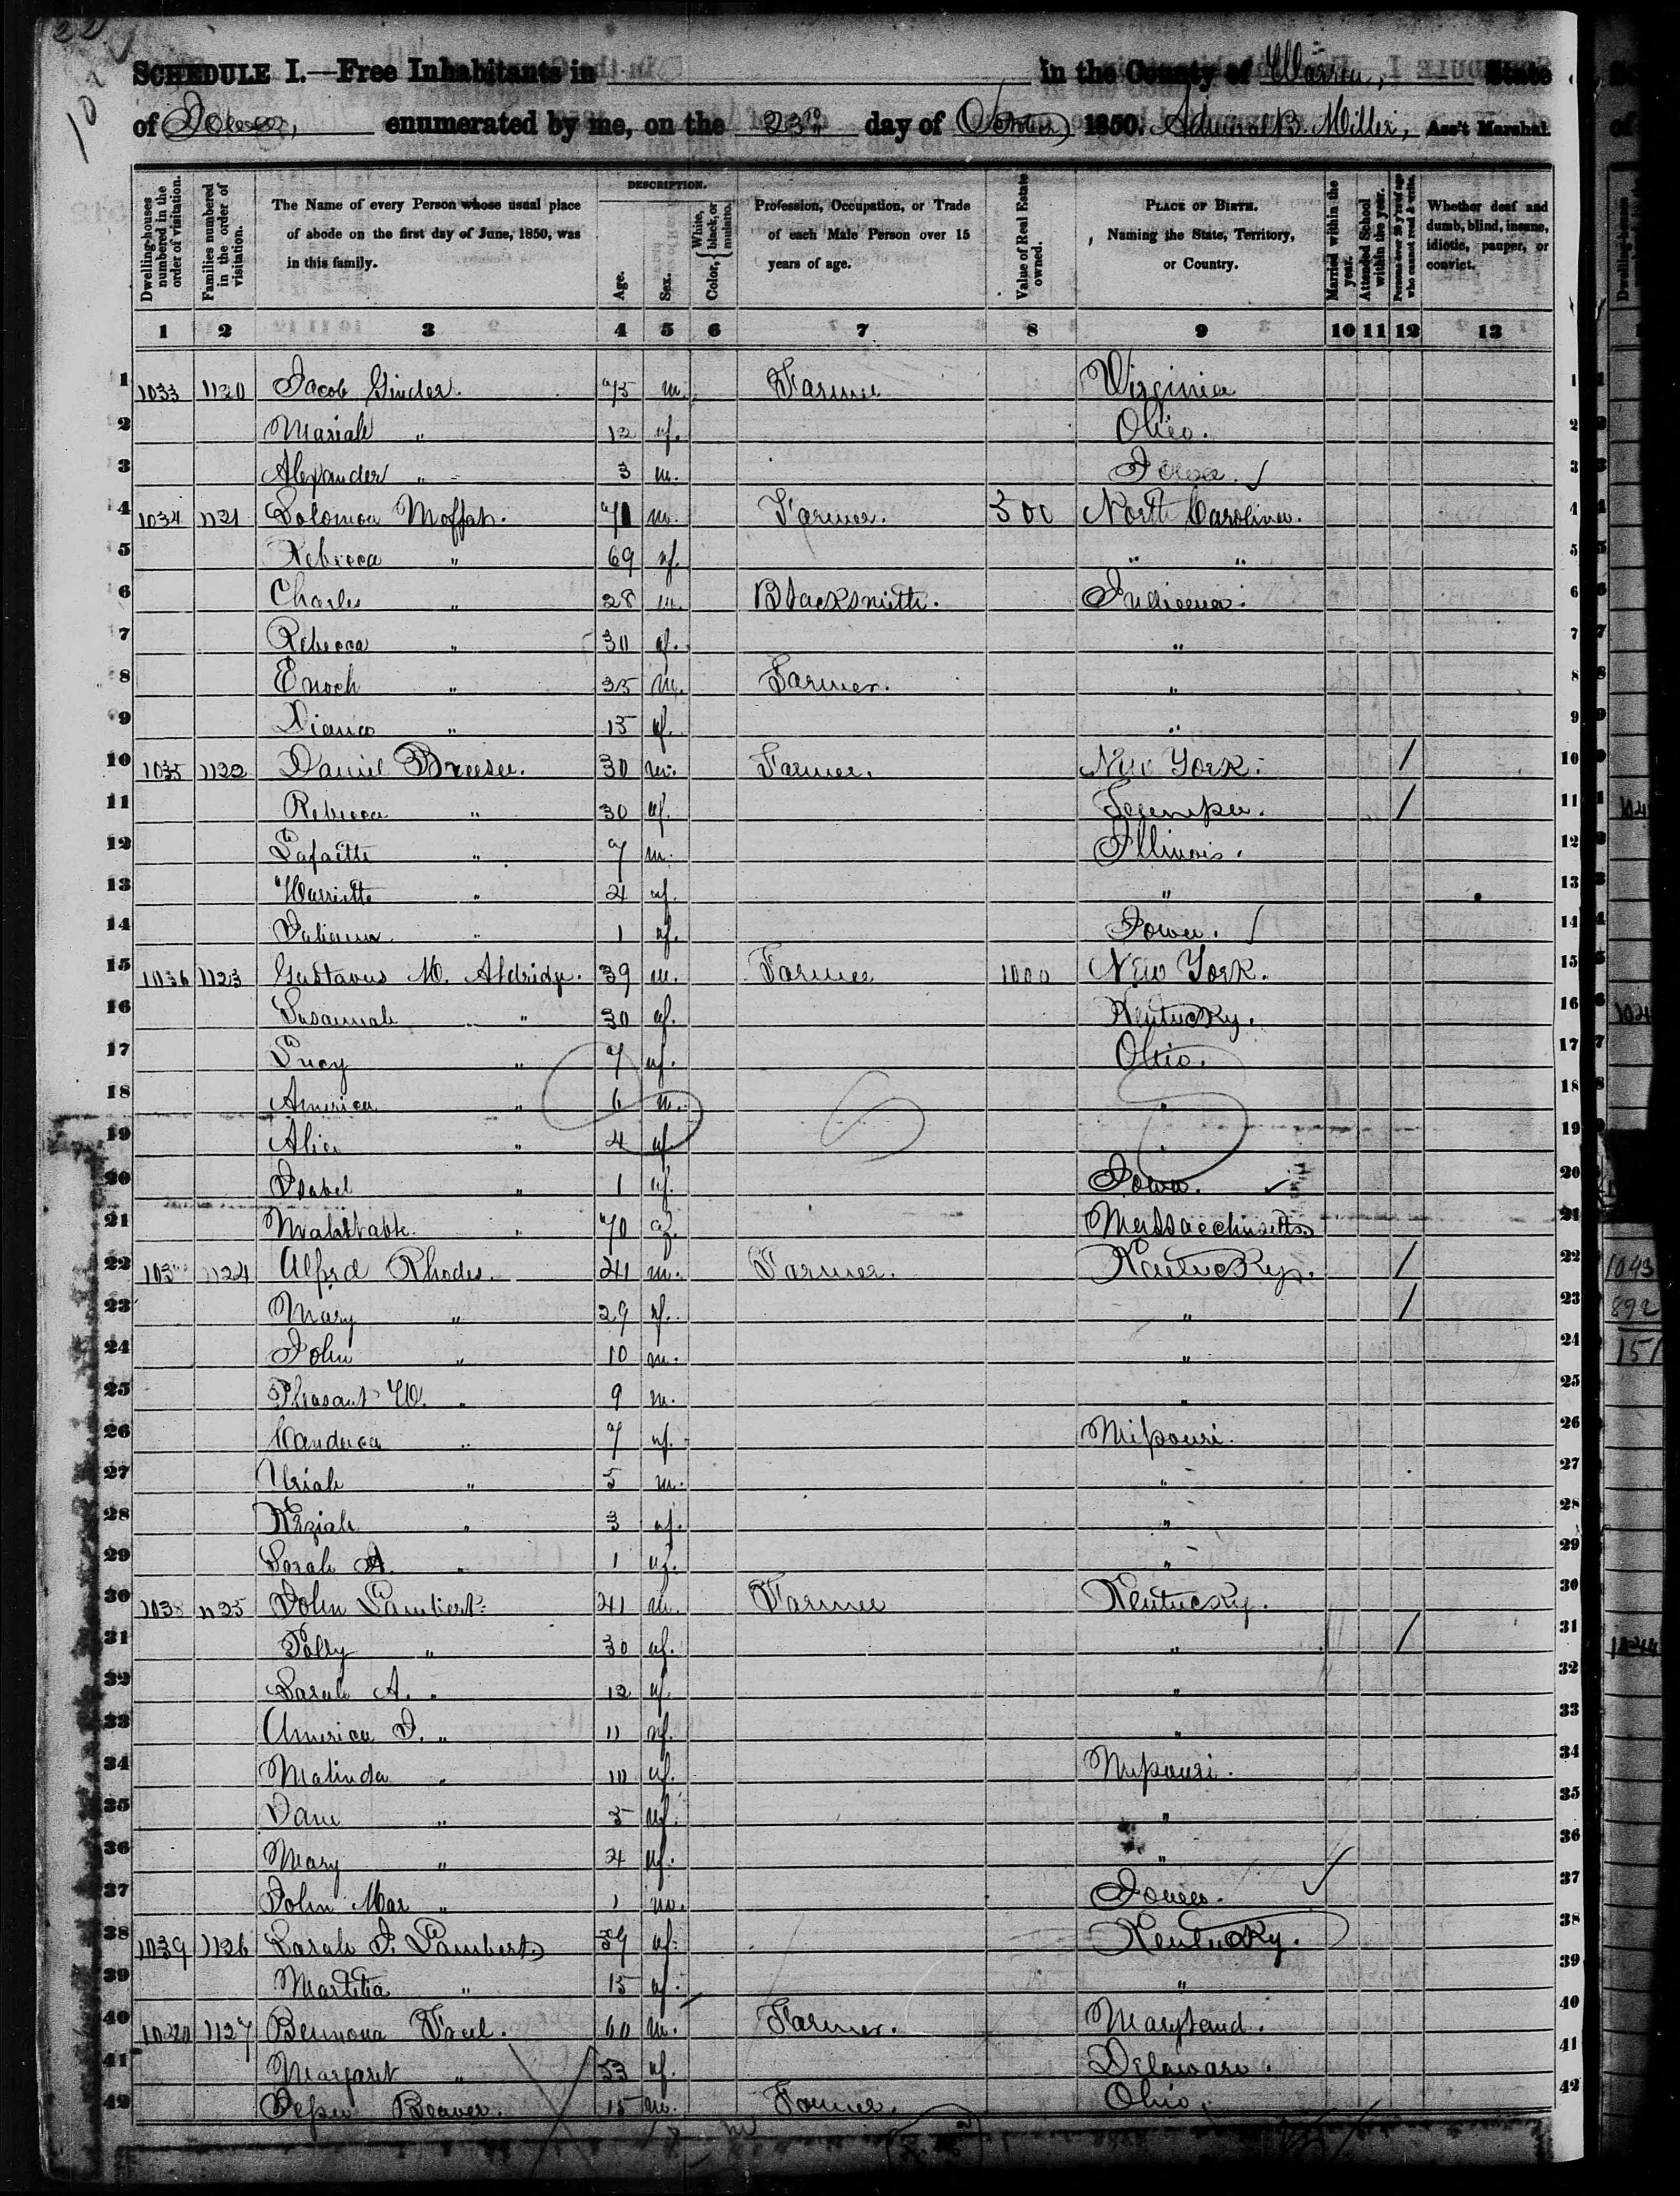 SCHEDULE I.—Free Inhabitants in in the County of Warren, State
of Iowa, enumerated by me, on the 23rd day of October 1850. Admiral B. Miller, Ass't Marshal.
Dwelling-houses numbered in the order of visitation.
Families numbered in the order of visitation.
The Name of every Person whose usual place of abode on the first day of June, 1850, was in this family.
DESCRIPTION.
Age.
Sex.
Color, { White, black, or mulatto.
Profession, Occupation, or Trade of each Male Person over 15 years of age.
Value of Real Estate owned.
PLACE OF BIRTH. Naming the State, Territory, or Country.
Married within the year.
Attended School within the year.
Persons over 20 y'rs of age who cannot read & write.
Whether deaf and dumb, blind, insane, idiotic, pauper, or convict.
1 2 3 4 5 6 7 8 9 10 11 12 13
1 1033 1120 Jacob Ginder. 75 m. Farmer Virginia 1
2 Mariah " 12 f. Ohio. 2
3 Alexander " 3 m. Iowa. ✓ 3
4 1034 1121 Solomon Moffat. 71 m. Farmer. 300 North Carolina. 4
5 Rebecca " 69 f. " " 5
6 Charles " 28 m. Blacksmith. Indiana. 6
7 Rebecca " 30 f. " 7
8 Enoch " 25 m. Farmer. " 8
9 Diana " 15 f. " 9
10 1035 1122 Daniel Breese. 30 m. Farmer. New York. / 10
11 Rebecca " 30 f. / 11
12 Lafaitte " 7 m. Illinois. 12
13 Harriette " 4 f. " 13
14 Juliann " 1 f. Iowa. ✓ 14
15 1036 1123 Gustavus M. Aldridge. 39 m. Farmer 1000 New York. 15
16 Susannah " 30 f. Kentucky. 16
17 Lucy " 7 f. Ohio. 17
18 America " 6 m. " 18
19 Alice " 4 f. " 19
20 Isabel " 1 f. Iowa. ✓ 20
21 " 70 f. Massacchusetts 21
22 1124 Alfrd Rhodes. 41 m. Farmer. Kentucky. / 22
23 Mary " 29 f. " / 23
24 John " 10 m. " 24
25 Pleasant W. " 9 m. " 25
26 Candacca " 7 f. Missouri. 26
27 Uriah " 5 m. " 27
28 Keziah " 3 f. " 28
29 Sarah A. " 1 f. " 29
30 1038 1125 John Lambert. 41 m. Farmer Kentucky. 30
31 Polly " 30 f. " / 31
32 Sarah A. " 12 f. " 32
33 America J. " 11 f. " 33
34 Malinda " 10 f. Missouri. 34
35 Jane " 5 f. " 35
36 Mary " 4 f. " 36
37 John Mar " 1 m. Iowa. ✓ 37
38 1039 1126 Sarah J. Lambert 39 f. Kentucky. 38
39 Martitia " 15 f. " 39
40 1040 1127 Bennona Fouel. 60 m. Farmer. Maryland. 40
41 Margaret " 53 f. Delaware. 41
42 Jesse Beaver. 15 m. Farmer. Ohio. 42
1043
892
151